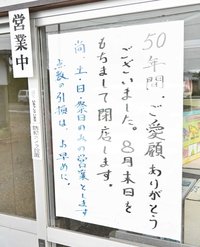 50年間、ご愛顧ありがとう
ございました。8月末日を
もちまして閉店します。
尚 土・日・祭日のみの営業とします
点数の引換は、お早めに!
営業中